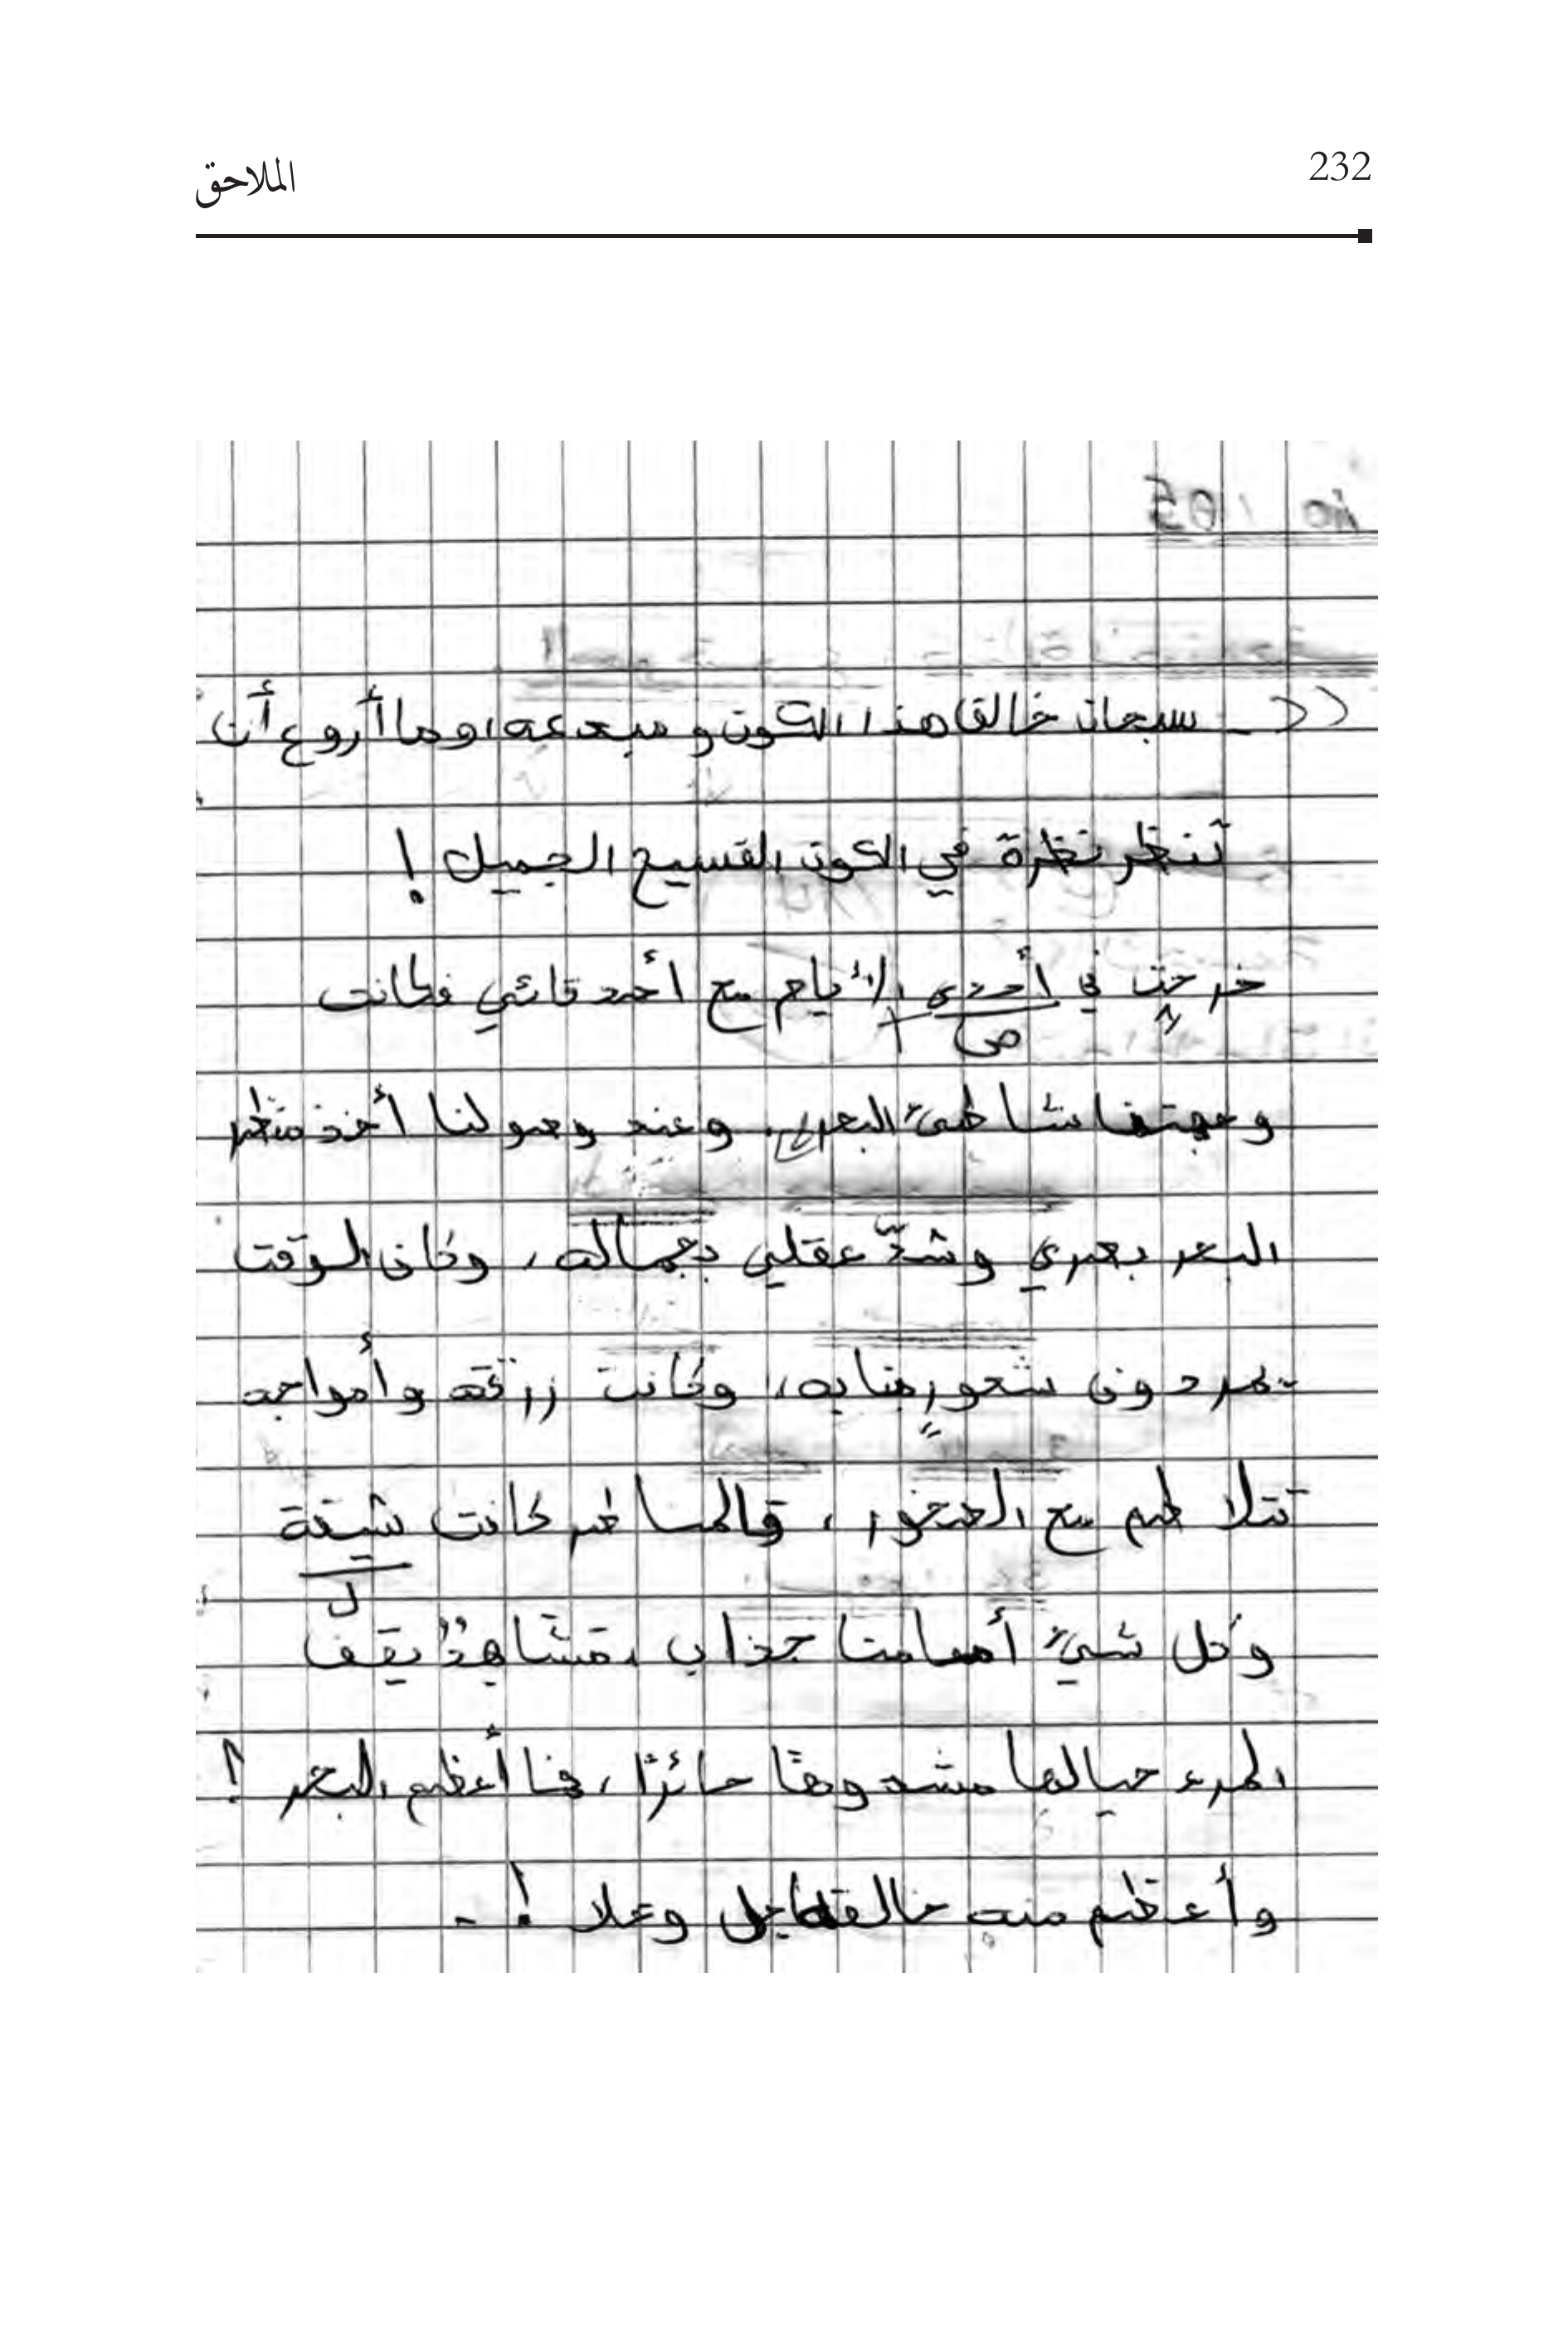 232
الملاحق
(( - سبحان خالق هذا الكون و مبدعه، وما أروع أن
تنظر نظرة في الكون الفسيح الجميل !
خرجت في أحدى الأيام مع أصدقائي فكانت
وجهتنا شاطئ البحر، وعند وصولنا أخذ منظر
البحر بصري وشدّ عقلي بجماله، وكان الوقت
يمر دون شعورٍ منا به، وكانت زرقته وأمواجه
تتلا طم مع الصخور، فالمناظر كانت شيقة
ص
ل
وكل شيئ أمامنا جذاب، مشاهدُ يقف
المرء حيالها مشدوهًا حائرًا، فما أعظم البحر !
وأعظم منه خالقه جل وعلا !..